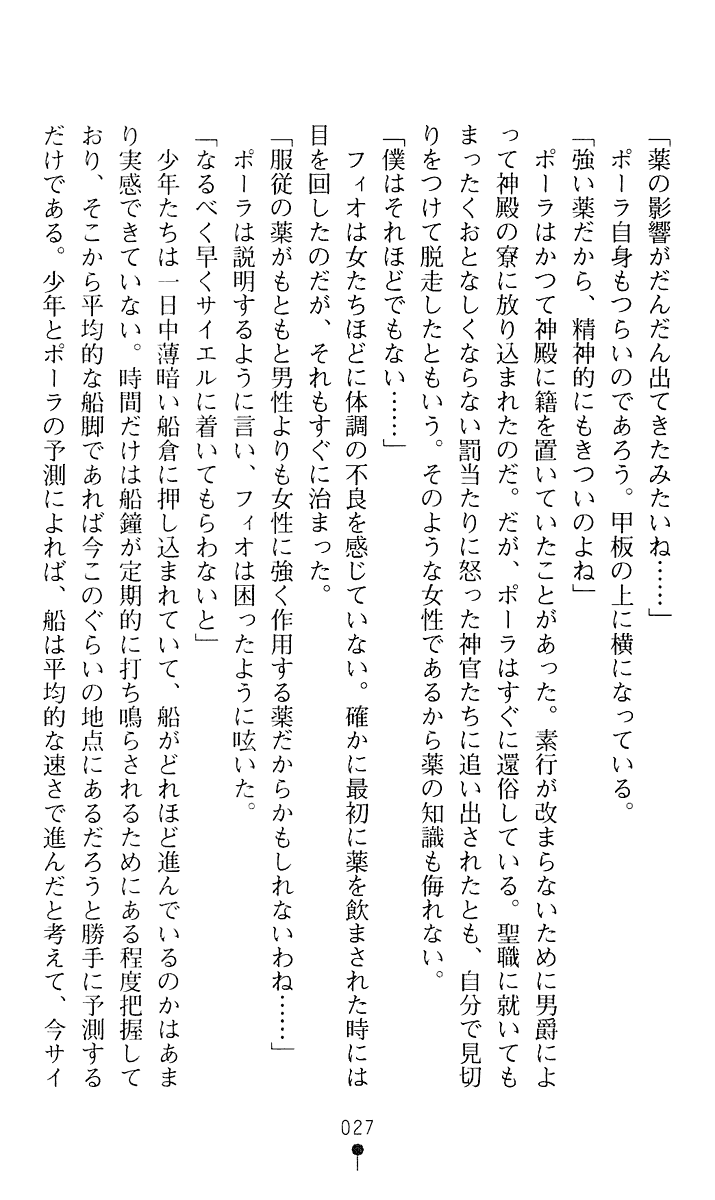 「薬の影響がだんだん出てきたみたいね……」
ポーラ自身もつらいのであろう。甲板の上に横になっている。
「強い薬だから、精神的にもきついのよね」
ポーラはかつて神殿に籍を置いていたことがあった。素行が改まらないために男爵によ
って神殿の寮に放り込まれたのだ。だが、ポーラはすぐに還俗している。聖職に就いても
まったくおとなしくならない罰当たりに怒った神官たちに追い出されたとも、自分で見切
りをつけて脱走したともいう。そのような女性であるから薬の知識も侮れない。
「僕はそれほどでもない……」
フィオは女たちほどに体調の不良を感じていない。確かに最初に薬を飲まされた時には
目を回したのだが、それもすぐに治まった。
「服従の薬がもともと男性よりも女性に強く作用する薬だからかもしれないわね……」
ポーラは説明するように言い、フィオは困ったように呟いた。
「なるべく早くサイエルに着いてもらわないと」
少年たちは一日中薄暗い船倉に押し込まれていて、船がどれほど進んでいるのかはあま
り実感できていない。時間だけは船鐘が定期的に打ち鳴らされるためにある程度把握して
おり、そこから平均的な船脚であれば今このぐらいの地点にあるだろうと勝手に予測する
だけである。少年とポーラの予測によれば、船は平均的な速さで進んだと考えて、今サイ
027